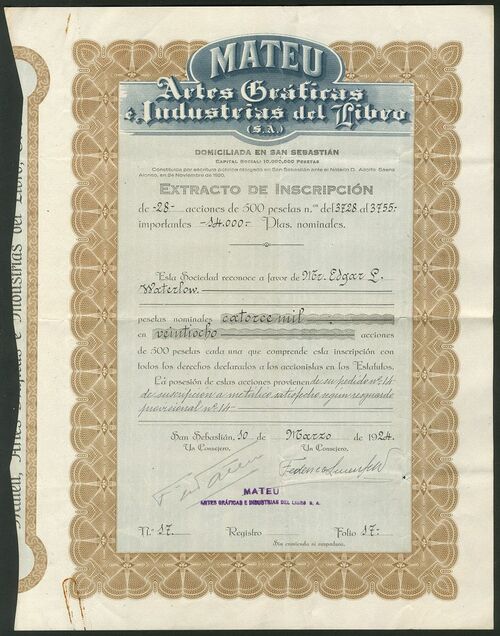 MATEU
Artes Gráficas
é Industrias del Libro
(S.A.)
DOMICILIADA EN SAN SEBASTIÁN
CAPITAL SOCIAL: 10.000.000 PESETAS
Constituída por escritura pública otorgada en San Sebastián ante el Notario D. Adolfo Sáenz
Alonso, en 24 Noviembre de 1920.
EXTRACTO DE INSCRIPCIÓN
de -28- acciones de 500 pesetas n.os del 3728 al 3755-
importantes -14.000- Ptas. nominales.
Esta Sociedad reconoce a favor de Mr. Edgar L.
Waterlow.
pesetas nominales catorce mil
en veintiocho acciones
de 500 pesetas cada una que comprende esta inscripción con
todos los derechos declarados a los accionistas en los Estatutos.
La posesión de estas acciones provienen de su pedido nº 14
de suscripción a metálico satisfecho según resguardo
provisional nº 14-
San Sebastián, 10 de Marzo de 1924.
Un Consejero, Un Consejero,
MATEU
ARTES GRÁFICAS E INDUSTRIAS DEL LIBRO S. A.
N.º 17. Registro Folio 17-
Sin enmienda ni raspadura.
Mateu, Artes Gráficas e Industrias del Libro,